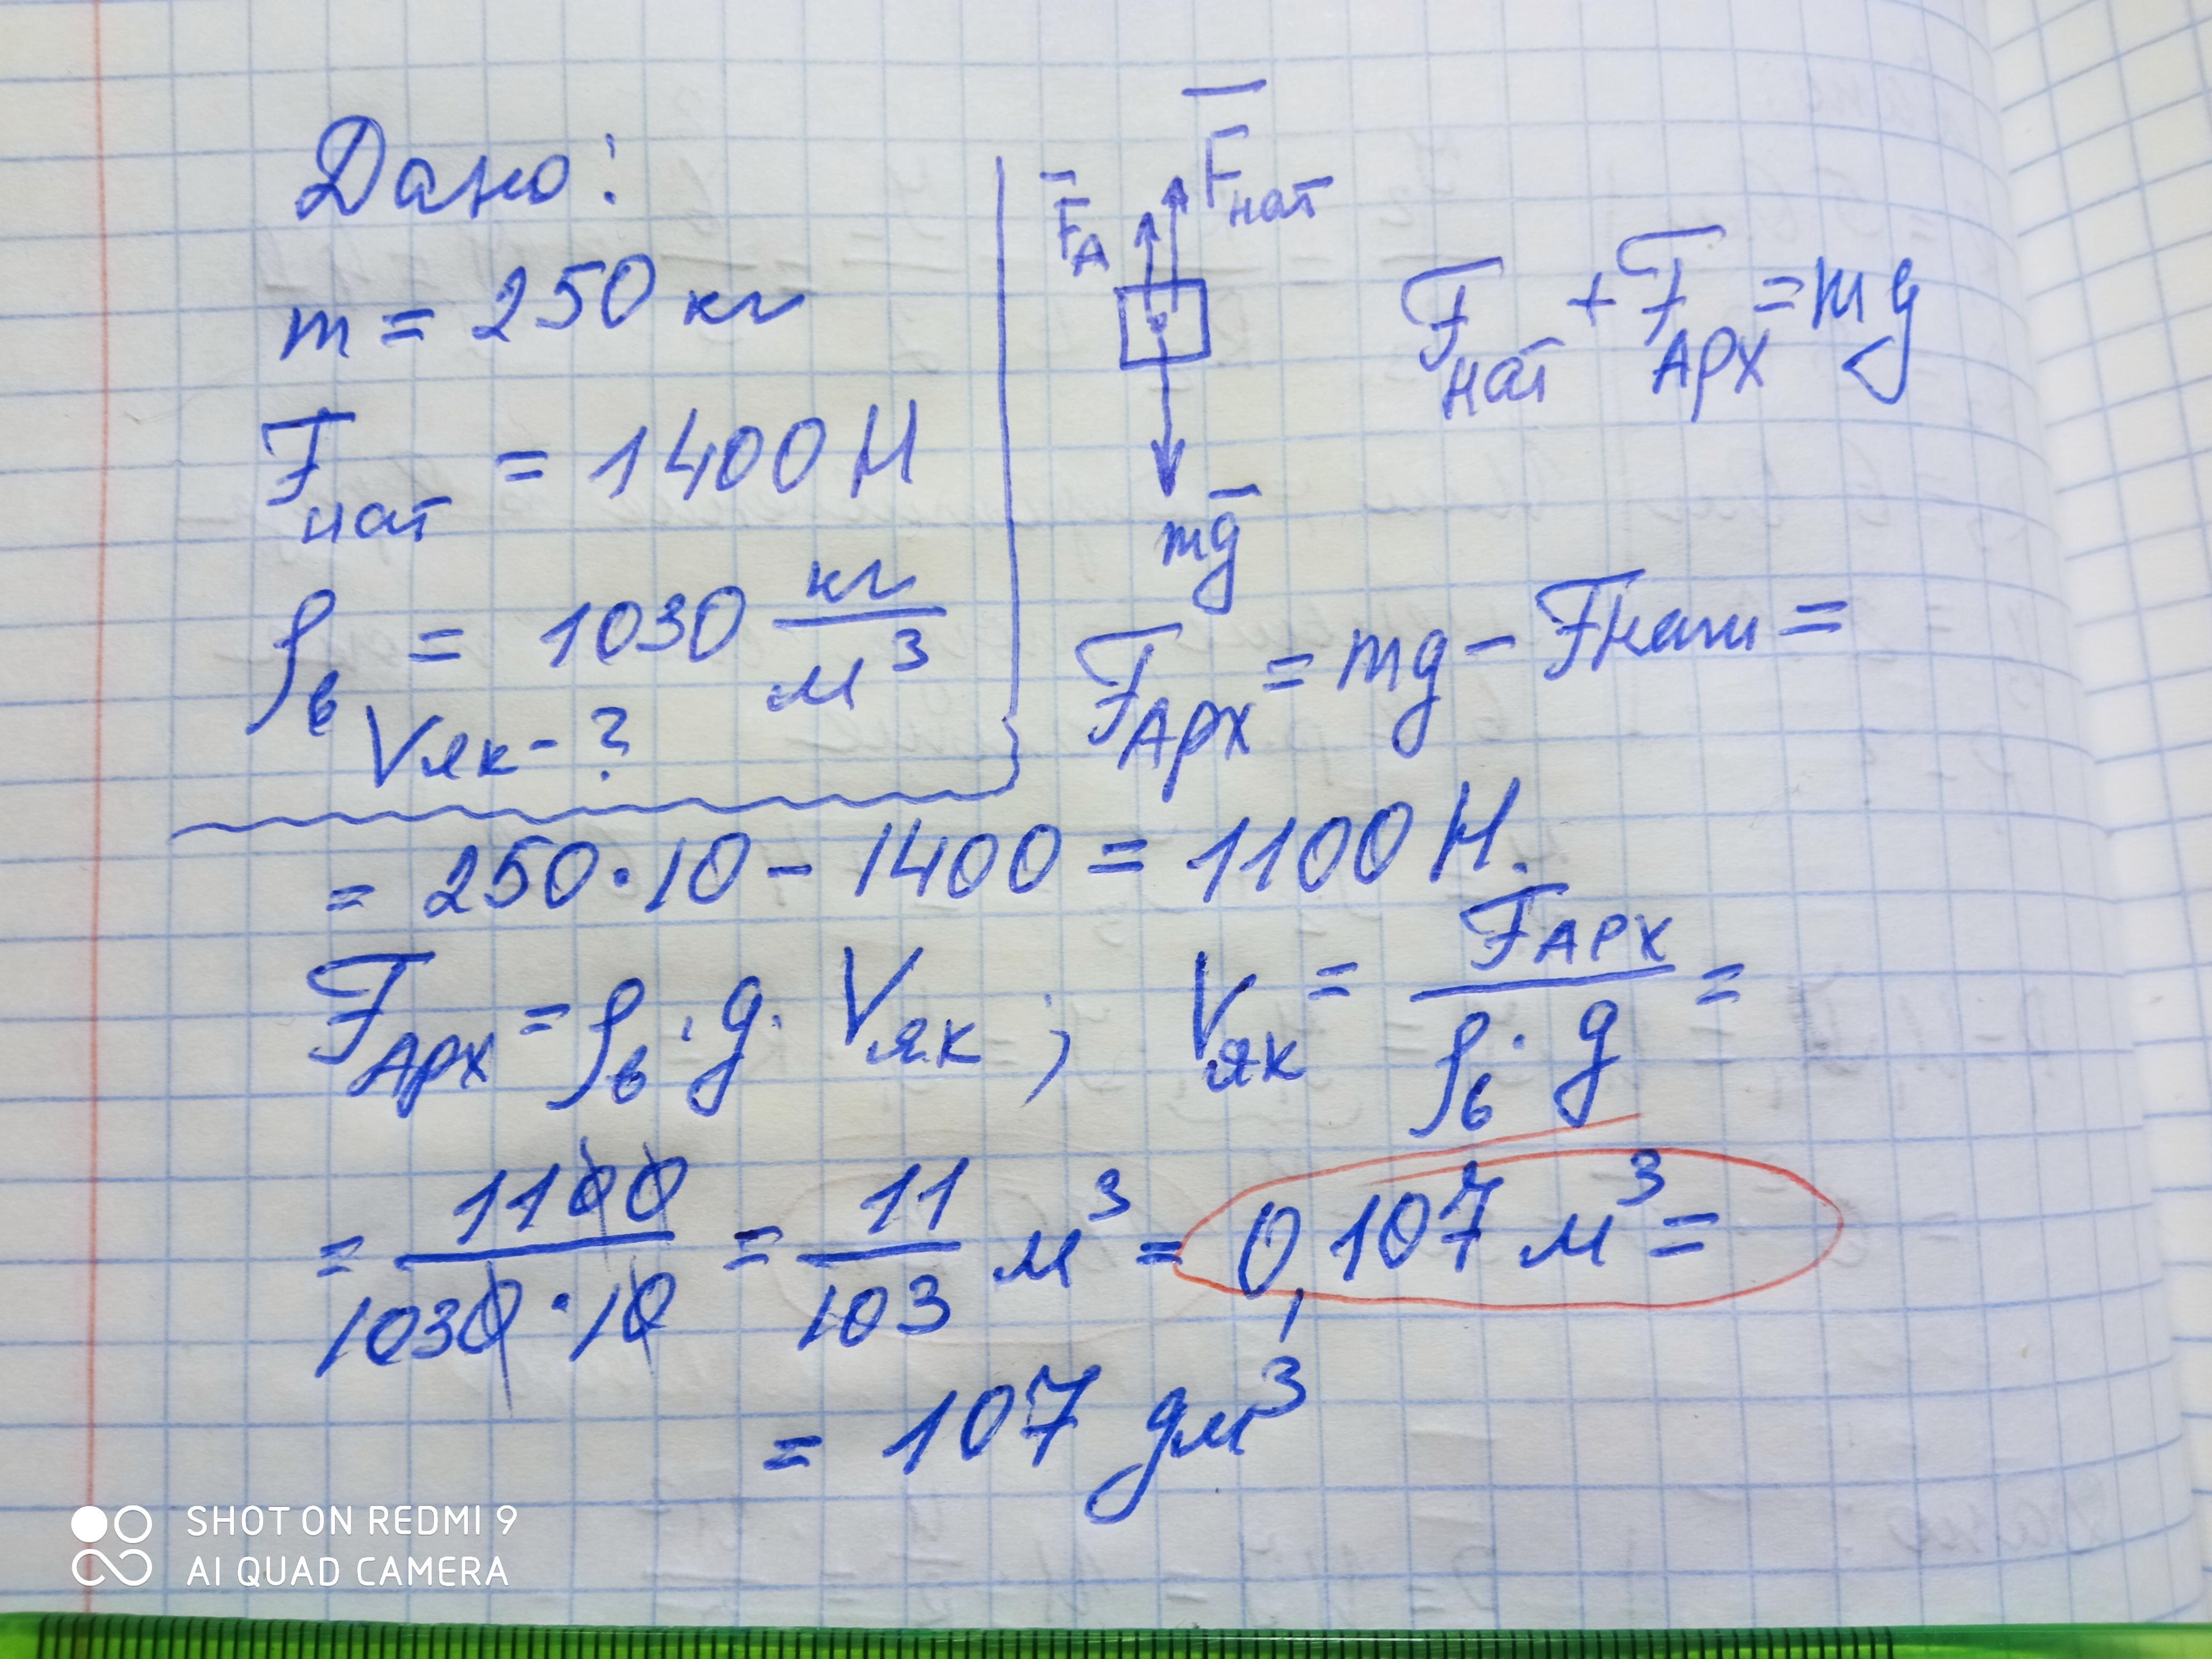 Дано:
m = 250 кг
Fнат = 1400 Н
ρв = 1030 кг/м³
Vяк - ?
F̅A F̅нат
mg̅
Fнат + FАРХ = mg
FАРХ = mg - Fнат =
= 250·10 - 1400 = 1100 Н.
FАРХ = ρв·g·Vяк ; Vяк = FАРХ/ρв·g =
= 1100/1030·10 = 11/103 м³ = 0,107 м³ =
= 107 дм³
SHOT ON REDMI 9
AI QUAD CAMERA